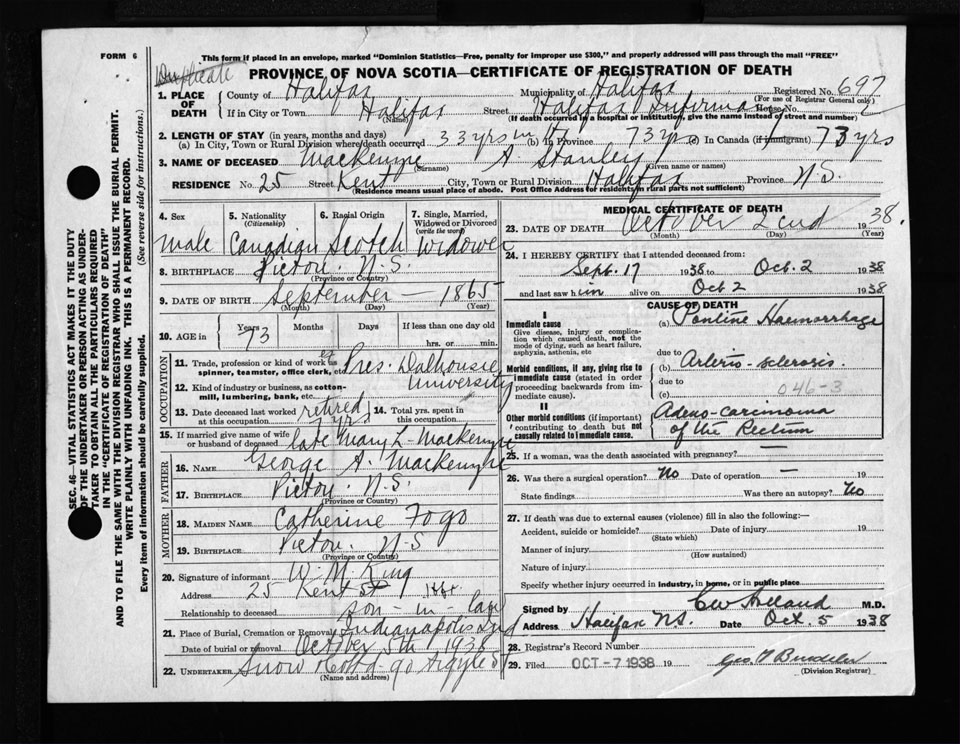 FORM 6
This form if placed in an envelope, marked "Dominion Statistics—Free, penalty for improper use $300," and properly addressed will pass through the mail "FREE"
Duplicate
PROVINCE OF NOVA SCOTIA—CERTIFICATE OF REGISTRATION OF DEATH
Registered No. 697
(For use of Registrar General only)
1. PLACE OF DEATH
County of Halifax Municipality of Halifax
If in City or Town Halifax Street Halifax Infirmary House No.
(Name) (If death occurred in a hospital or institution, give the name instead of street and number)
2. LENGTH OF STAY (in years, months and days)
(a) In City, Town or Rural Division where death occurred 33 yrs (b) In Province 73 yrs (c) In Canada (if immigrant) 73 yrs
3. NAME OF DECEASED Mackenzie A. Stanley
(Surname) (Given name or names)
RESIDENCE No. 25 Street Kent City, Town or Rural Division Halifax Province N.S.
(Residence means usual place of abode. Post Office Address for residents in rural parts not sufficient)
4. Sex
male
5. Nationality (Citizenship)
Canadian
6. Racial Origin
Scotch
7. Single, Married, Widowed or Divorced (write the word)
Widower
8. BIRTHPLACE Pictou. N.S.
(Province or Country)
9. DATE OF BIRTH September — 1865
(Month) (Day) (Year)
10. AGE in Years 73 Months Days If less than one day
hrs. or min.
OCCUPATION
11. Trade, profession or kind of work as spinner, teamster, office clerk, etc. Pres. Dalhousie
12. Kind of industry or business, as cotton-mill, lumbering, bank, etc. University
13. Date deceased last worked at this occupation retired 7 yrs.
14. Total yrs. spent in this occupation
15. If married give name of wife or husband of deceased late Mary L. Mackenzie
FATHER
16. NAME George A. Mackenzie
17. BIRTHPLACE Pictou. N.S.
(Province or Country)
MOTHER
18. MAIDEN NAME Catherine Fogo
19. BIRTHPLACE Pictou. N.S
(Province or Country)
20. Signature of informant W. M. King
Address 25 Kent St
Relationship to deceased son-in-law
21. Place of Burial, Cremation or Removal Indianapolis Ind
Date of burial or removal October 5th 1938
22. UNDERTAKER Snow & Co Ltd - 90 Argyle St
(Name and address)
MEDICAL CERTIFICATE OF DEATH
23. DATE OF DEATH October 2cnd 1938.
(Month) (Day) (Year)
24. I HEREBY CERTIFY that I attended deceased from:
Sept. 17 1938 to Oct. 2 1938
and last saw him alive on Oct 2 1938
CAUSE OF DEATH
I
Immediate cause
Give disease, injury or complication which caused death, not the mode of dying, such as heart failure, asphyxia, asthenia, etc
(a) Pontine Haemorrhage
due to
Morbid conditions, if any, giving rise to immediate cause (stated in order proceeding backwards from immediate).
(b) Arterio-sclerosis
due to
(c) 046-3
II
Other morbid conditions (if important) contributing to death but not causally related to immediate cause.
Adeno-carcinoma
of the Rectum
25. If a woman, was the death associated with pregnancy? —
26. Was there a surgical operation? No Date of operation —
State findings Was there an autopsy? No
27. If death was due to external causes (violence) fill in also the following:—
Accident, suicide or homicide? Date of injury 19
(State which)
Manner of injury
(How sustained)
Nature of injury
Specify whether injury occurred in industry, in home, or in public place
Signed by M.D.
Address Halifax N.S. Date Oct. 5 1938
28. Registrar's Record Number
29. Filed OCT -7 1938 19
(Division Registrar)
SEC. 46—VITAL STATISTICS ACT MAKES IT THE DUTY
OF THE UNDERTAKER OR PERSON ACTING AS UNDER-
TAKER TO OBTAIN ALL THE PARTICULARS REQUIRED
IN THE "CERTIFICATE OF REGISTRATION OF DEATH"
AND TO FILE THE SAME WITH THE DIVISION REGISTRAR WHO SHALL ISSUE THE BURIAL PERMIT.
WRITE PLAINLY WITH UNFADING INK. THIS IS A PERMANENT RECORD.
Every item of information should be carefully supplied. (See reverse side for instructions.)